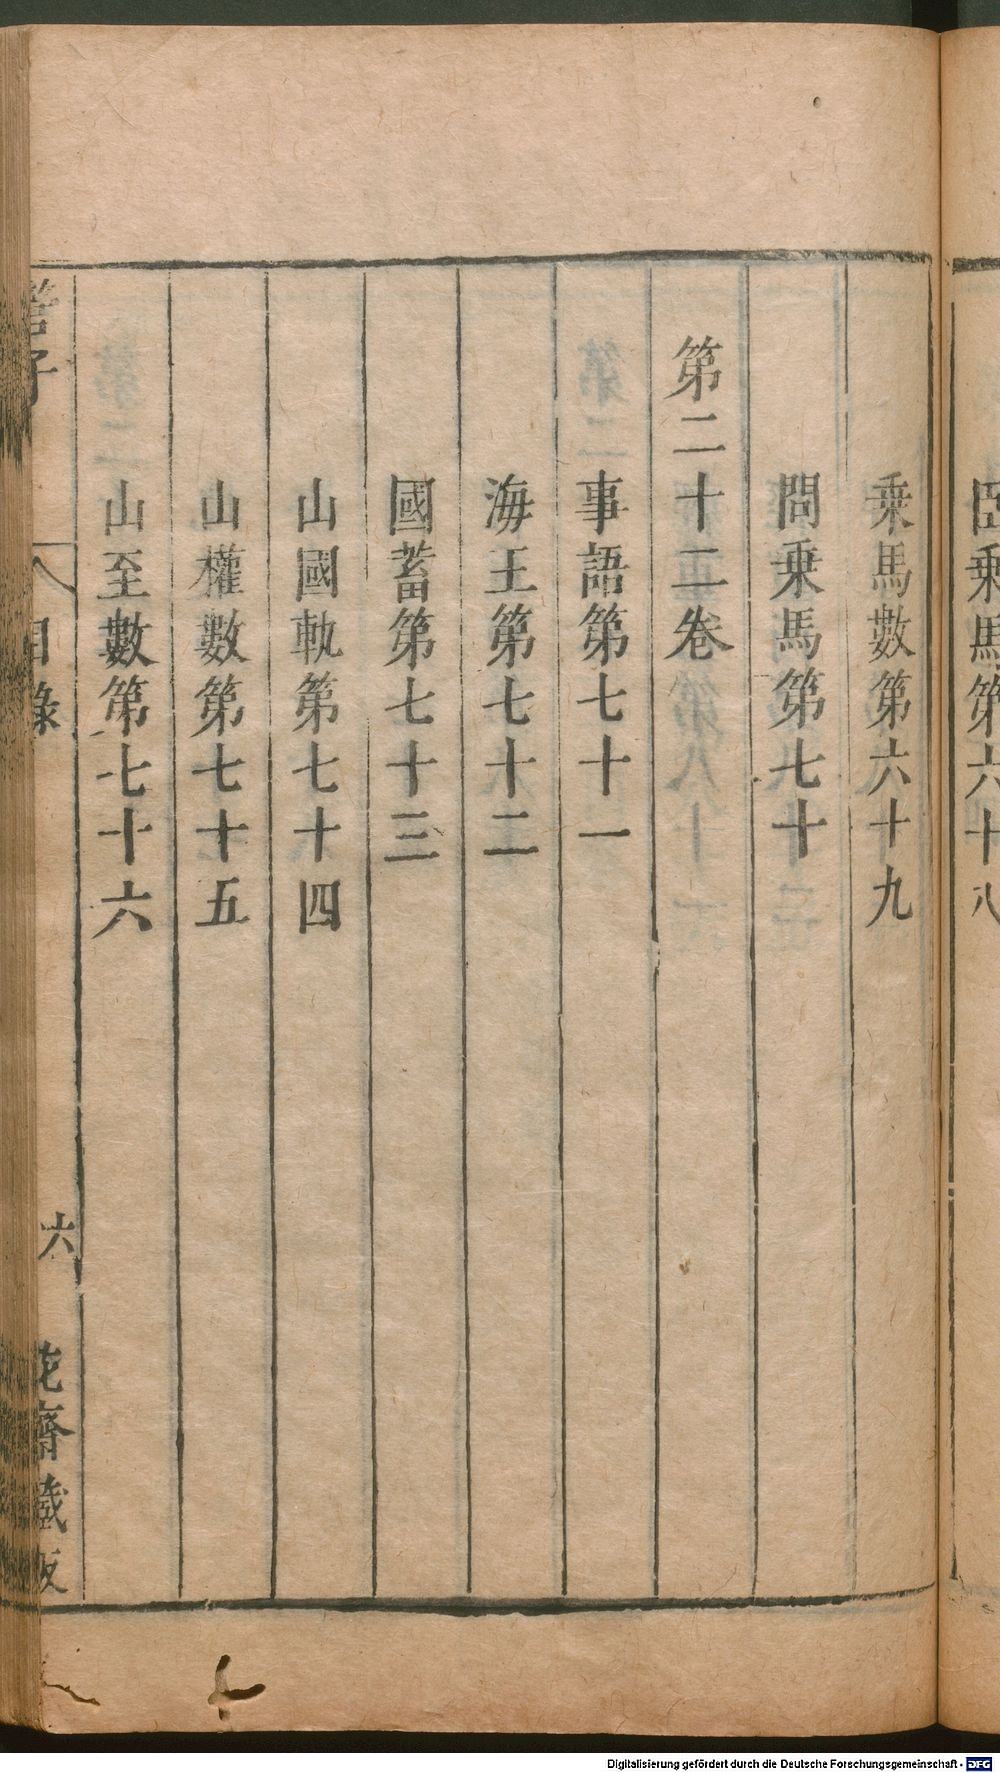 臣乗馬第六十八
乗馬數第六十九
問乗馬第七十
第二十二卷
事語第七十一
海王第七十二
國蓄第七十三
山國軌第七十四
山權數第七十五
山至數第七十六
管子 目錄 六 花齋藏板
Digitalisierung gefördert durch die Deutsche Forschungsgemeinschaft - DFG